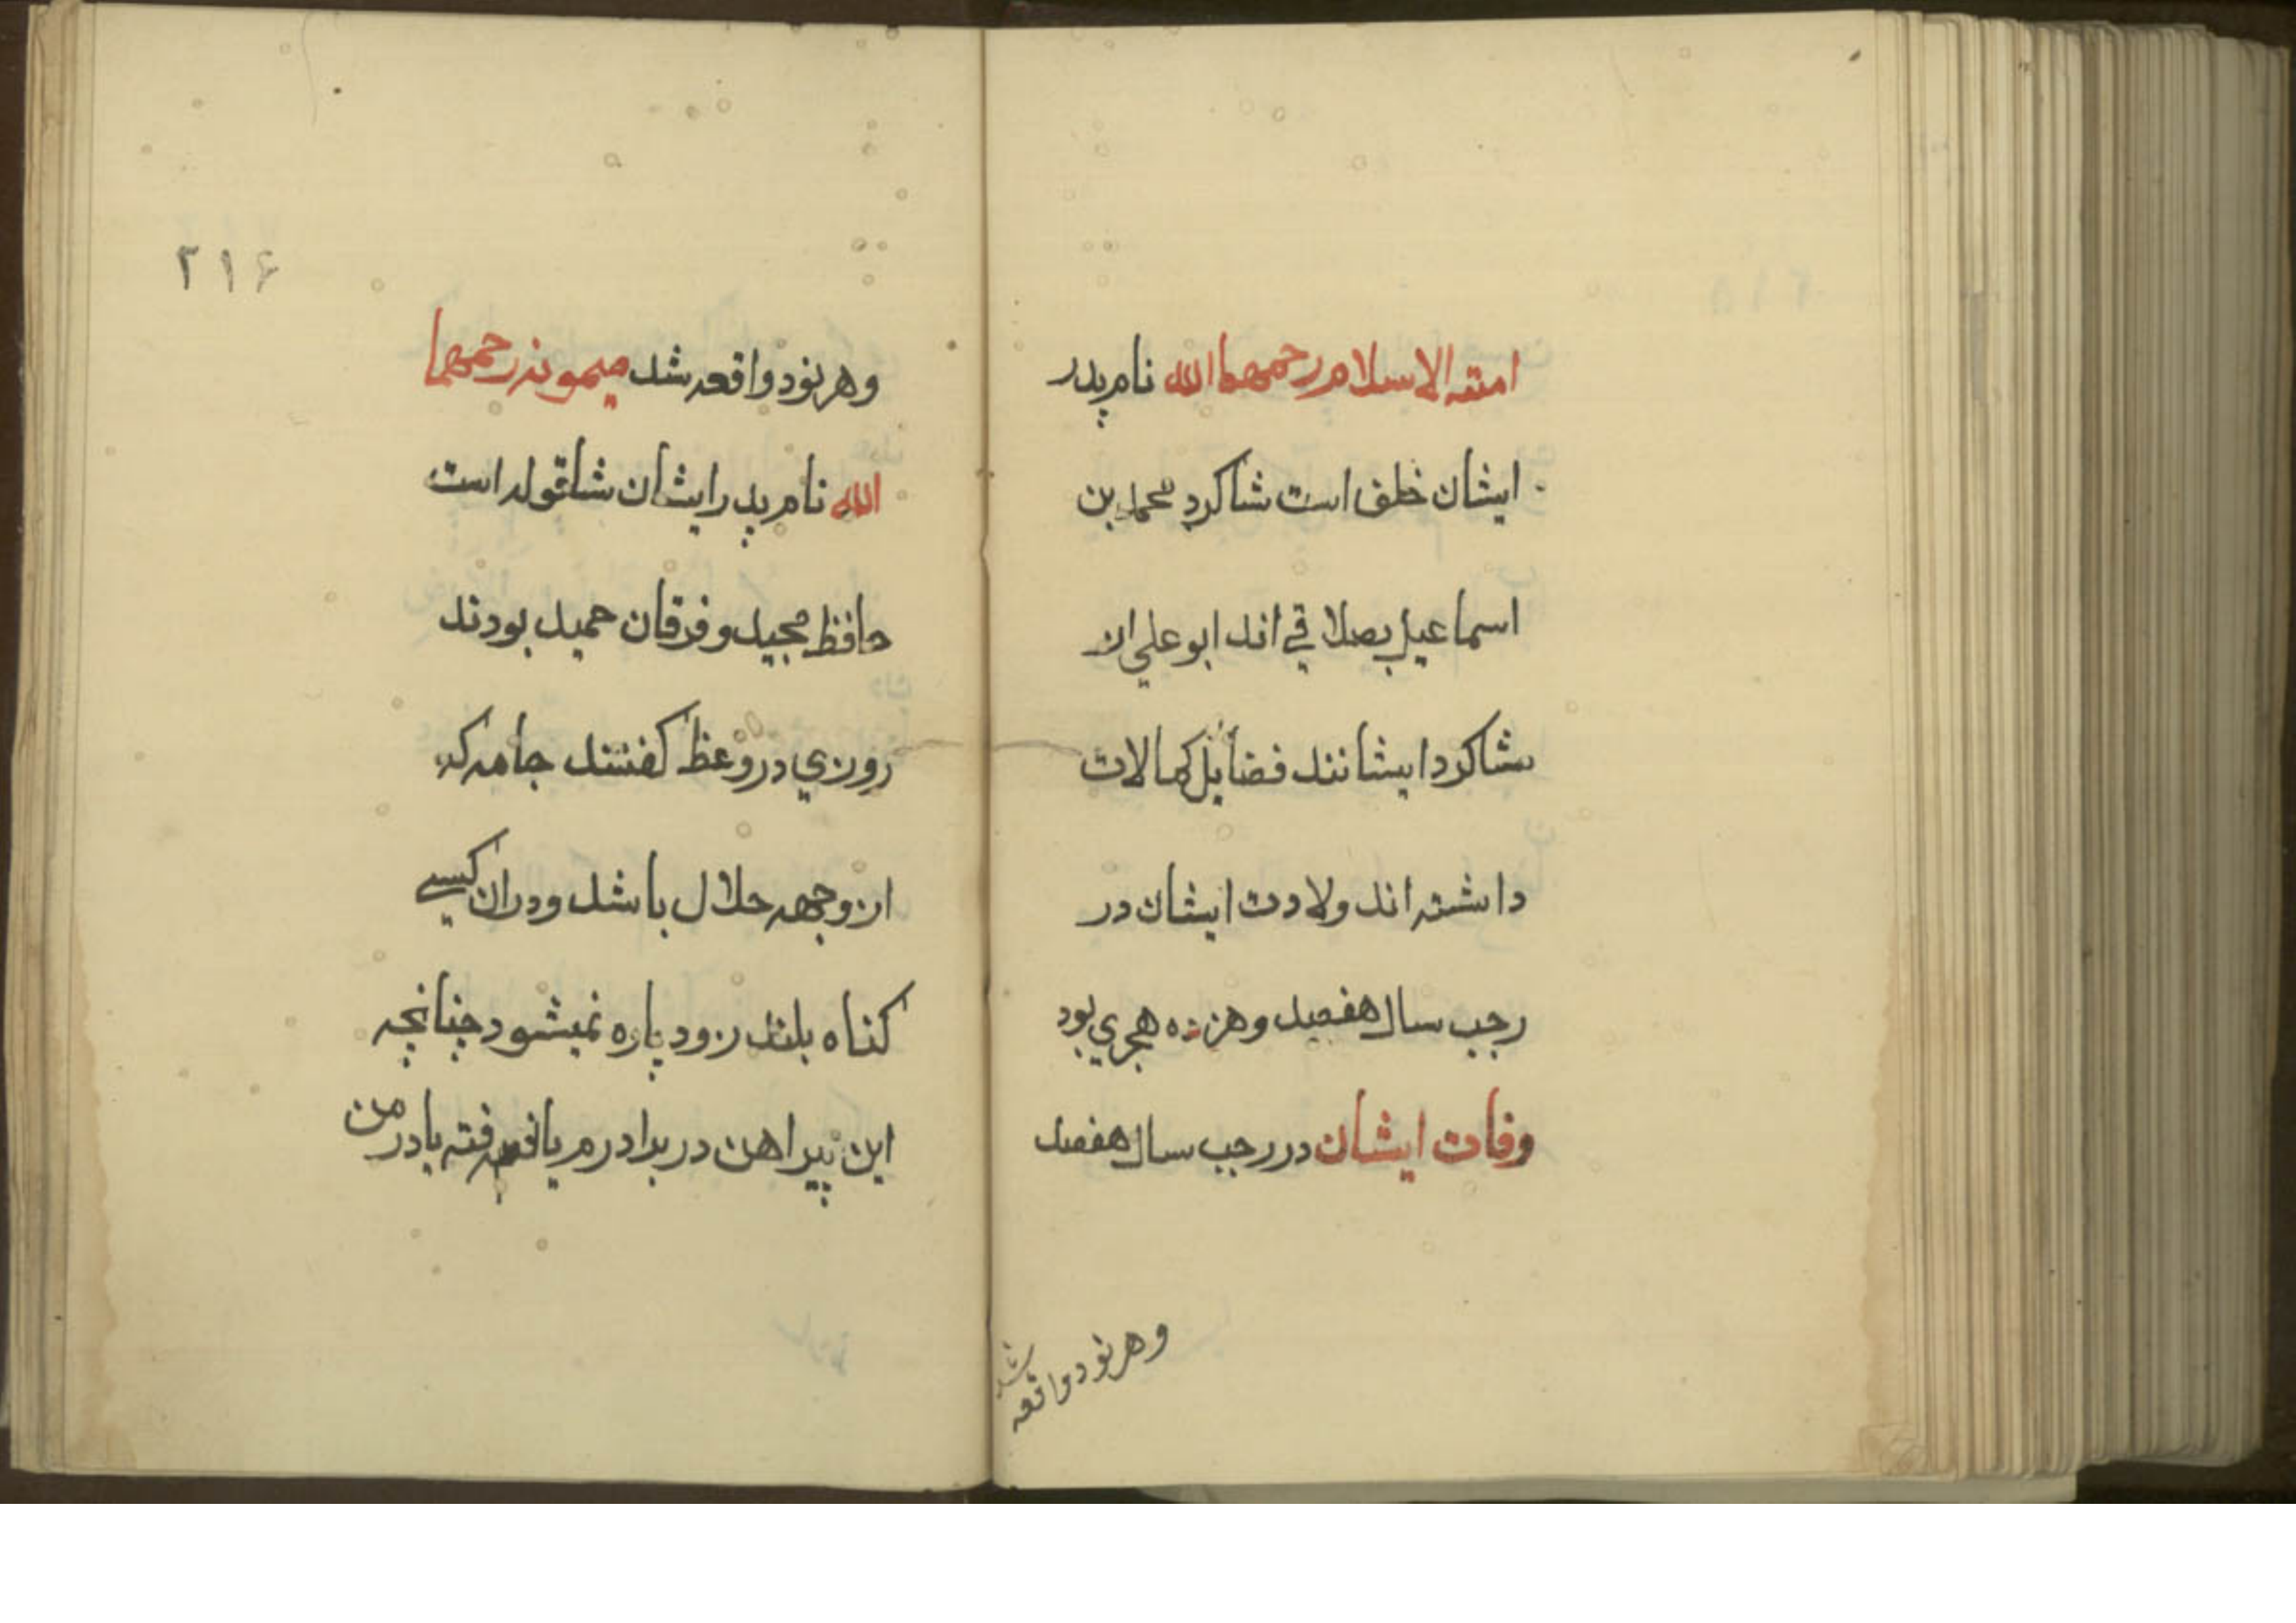 امته الاسلام رحمهما الله نام پدر
ایشان خلف است شاکرد محمد بن
اسماعیل بصلاقی اند ابو علی از
شاکرد ایشانند فضایل کمالات
داشته اند ولادت ایشان در
رجب سال هفصد وهزده هجري بود
وفات ایشان در رجب سال هفصد
وهر نود واقعه شد
۲۱۶
وهر نود واقعه شد میمونه رحمهما
الله نام پدر ایشان شاقوله است
حافظ مجید و فرقان حمید بودند
روزي در وعظ کفتند جامه که
از وجهه حلال باشد ودران کسے
کناه بلند زود پاره نمیشود چنانچه
این پیراهن در برادرم یافته بادر من